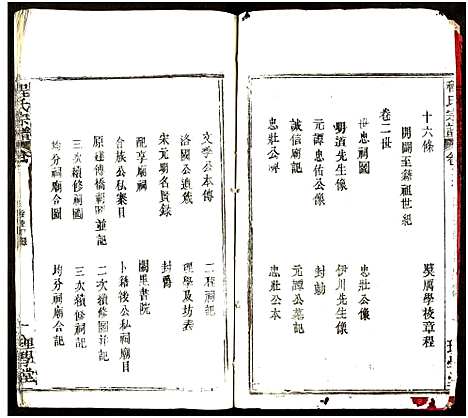 程氏宗譜
十六條
奬勵學校章程
開闢至嶽祖世紀
卷二世
世忠祠圖
忠壯公像
明道先生像
伊川先生像
元譚忠佑公像
封勅
誠信廟記
元譚公墓記
忠壯公碑
忠壯公本
文季公本傳
二程祠記
洛國公遺蔑
理學及坊表
宋元朝名賢錄
封爵
配享廟祠
闕里書院
合族公私案目
卜籍後公私祠廟目
原建傳橋祠圖並記
二次續修圖并記
三次續修祠圖
三次續修祠記
均分祠廟合圖
均分祠廟合記
程氏宗譜
一理學堂